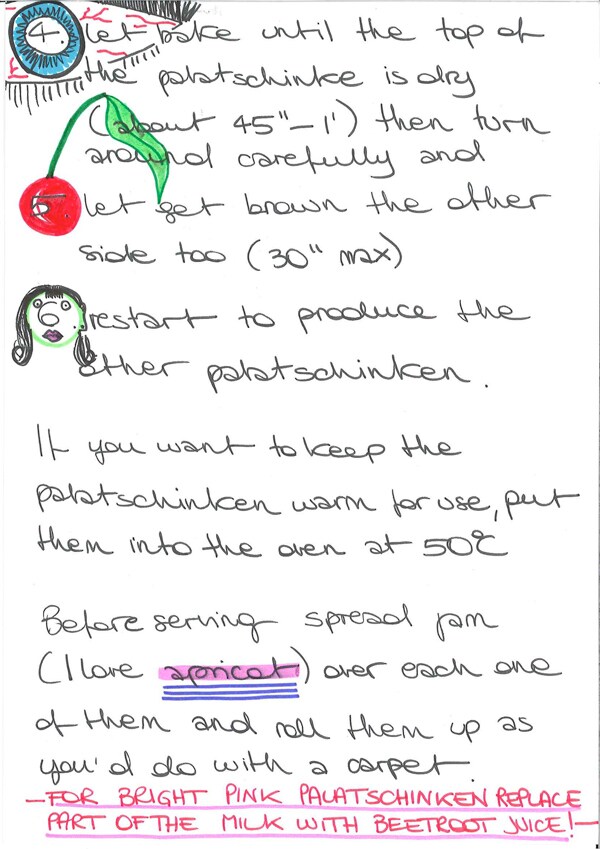 4. let bake until the top of
the palatschinke is dry
(about 45"-1') then turn
around carefully and
5. let get brown the other
side too (30" max)
6. restart to produce the
other palatschinken.
If you want to keep the
palatschinken warm for use, put
them into the oven at 50°C
Before serving spread jam
(I love apricot) over each one
of them and roll them up as
you'd do with a carpet.
-FOR BRIGHT PINK PALATSCHINKEN REPLACE
PART OF THE MILK WITH BEETROOT JUICE!-